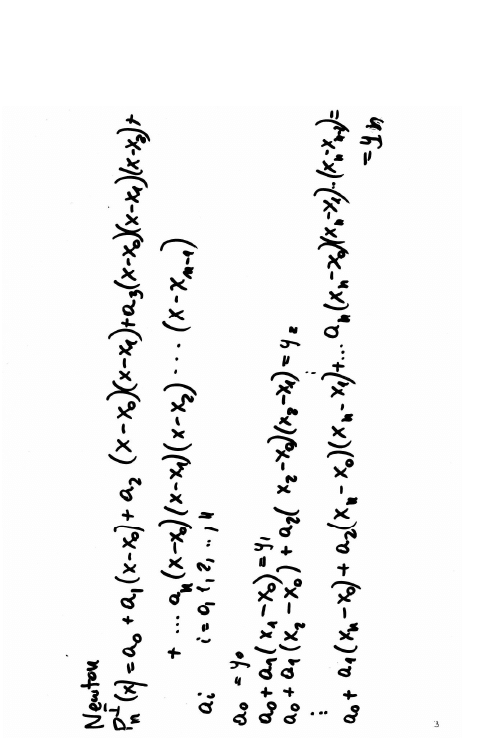 Newton
P_n^I (x) = a_0 + a_1 (x-x_0) + a_2 (x-x_0)(x-x_1) + a_3 (x-x_0)(x-x_1)(x-x_2) +
+ ... a_n (x-x_0)(x-x_1)(x-x_2) ... (x-x_{n-1})
a_i i = 0, 1, 2, ..., n
a_0 = y_0
a_0 + a_1 (x_1-x_0) = y_1
a_0 + a_1 (x_2-x_0) + a_2 (x_2-x_0)(x_2-x_1) = y_2
⋮ ⋮
a_0 + a_1 (x_n-x_0) + a_2 (x_n-x_0)(x_n-x_1) + ... a_n (x_n-x_0)(x_n-x_1)...(x_n-x_{n-1}) =
= y_n
3